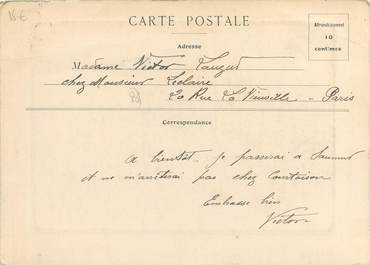 15 €
CARTE POSTALE
Affranchissement
10
centimes
Adresse
Madame Victor
chez Monsieur Leclaire
Rue La Vieuville - Paris
Correspondance
A bientôt. je passerai à Saumur
et ne m'arrêterai pas chez Courtoison
Embrasse bien
Victor